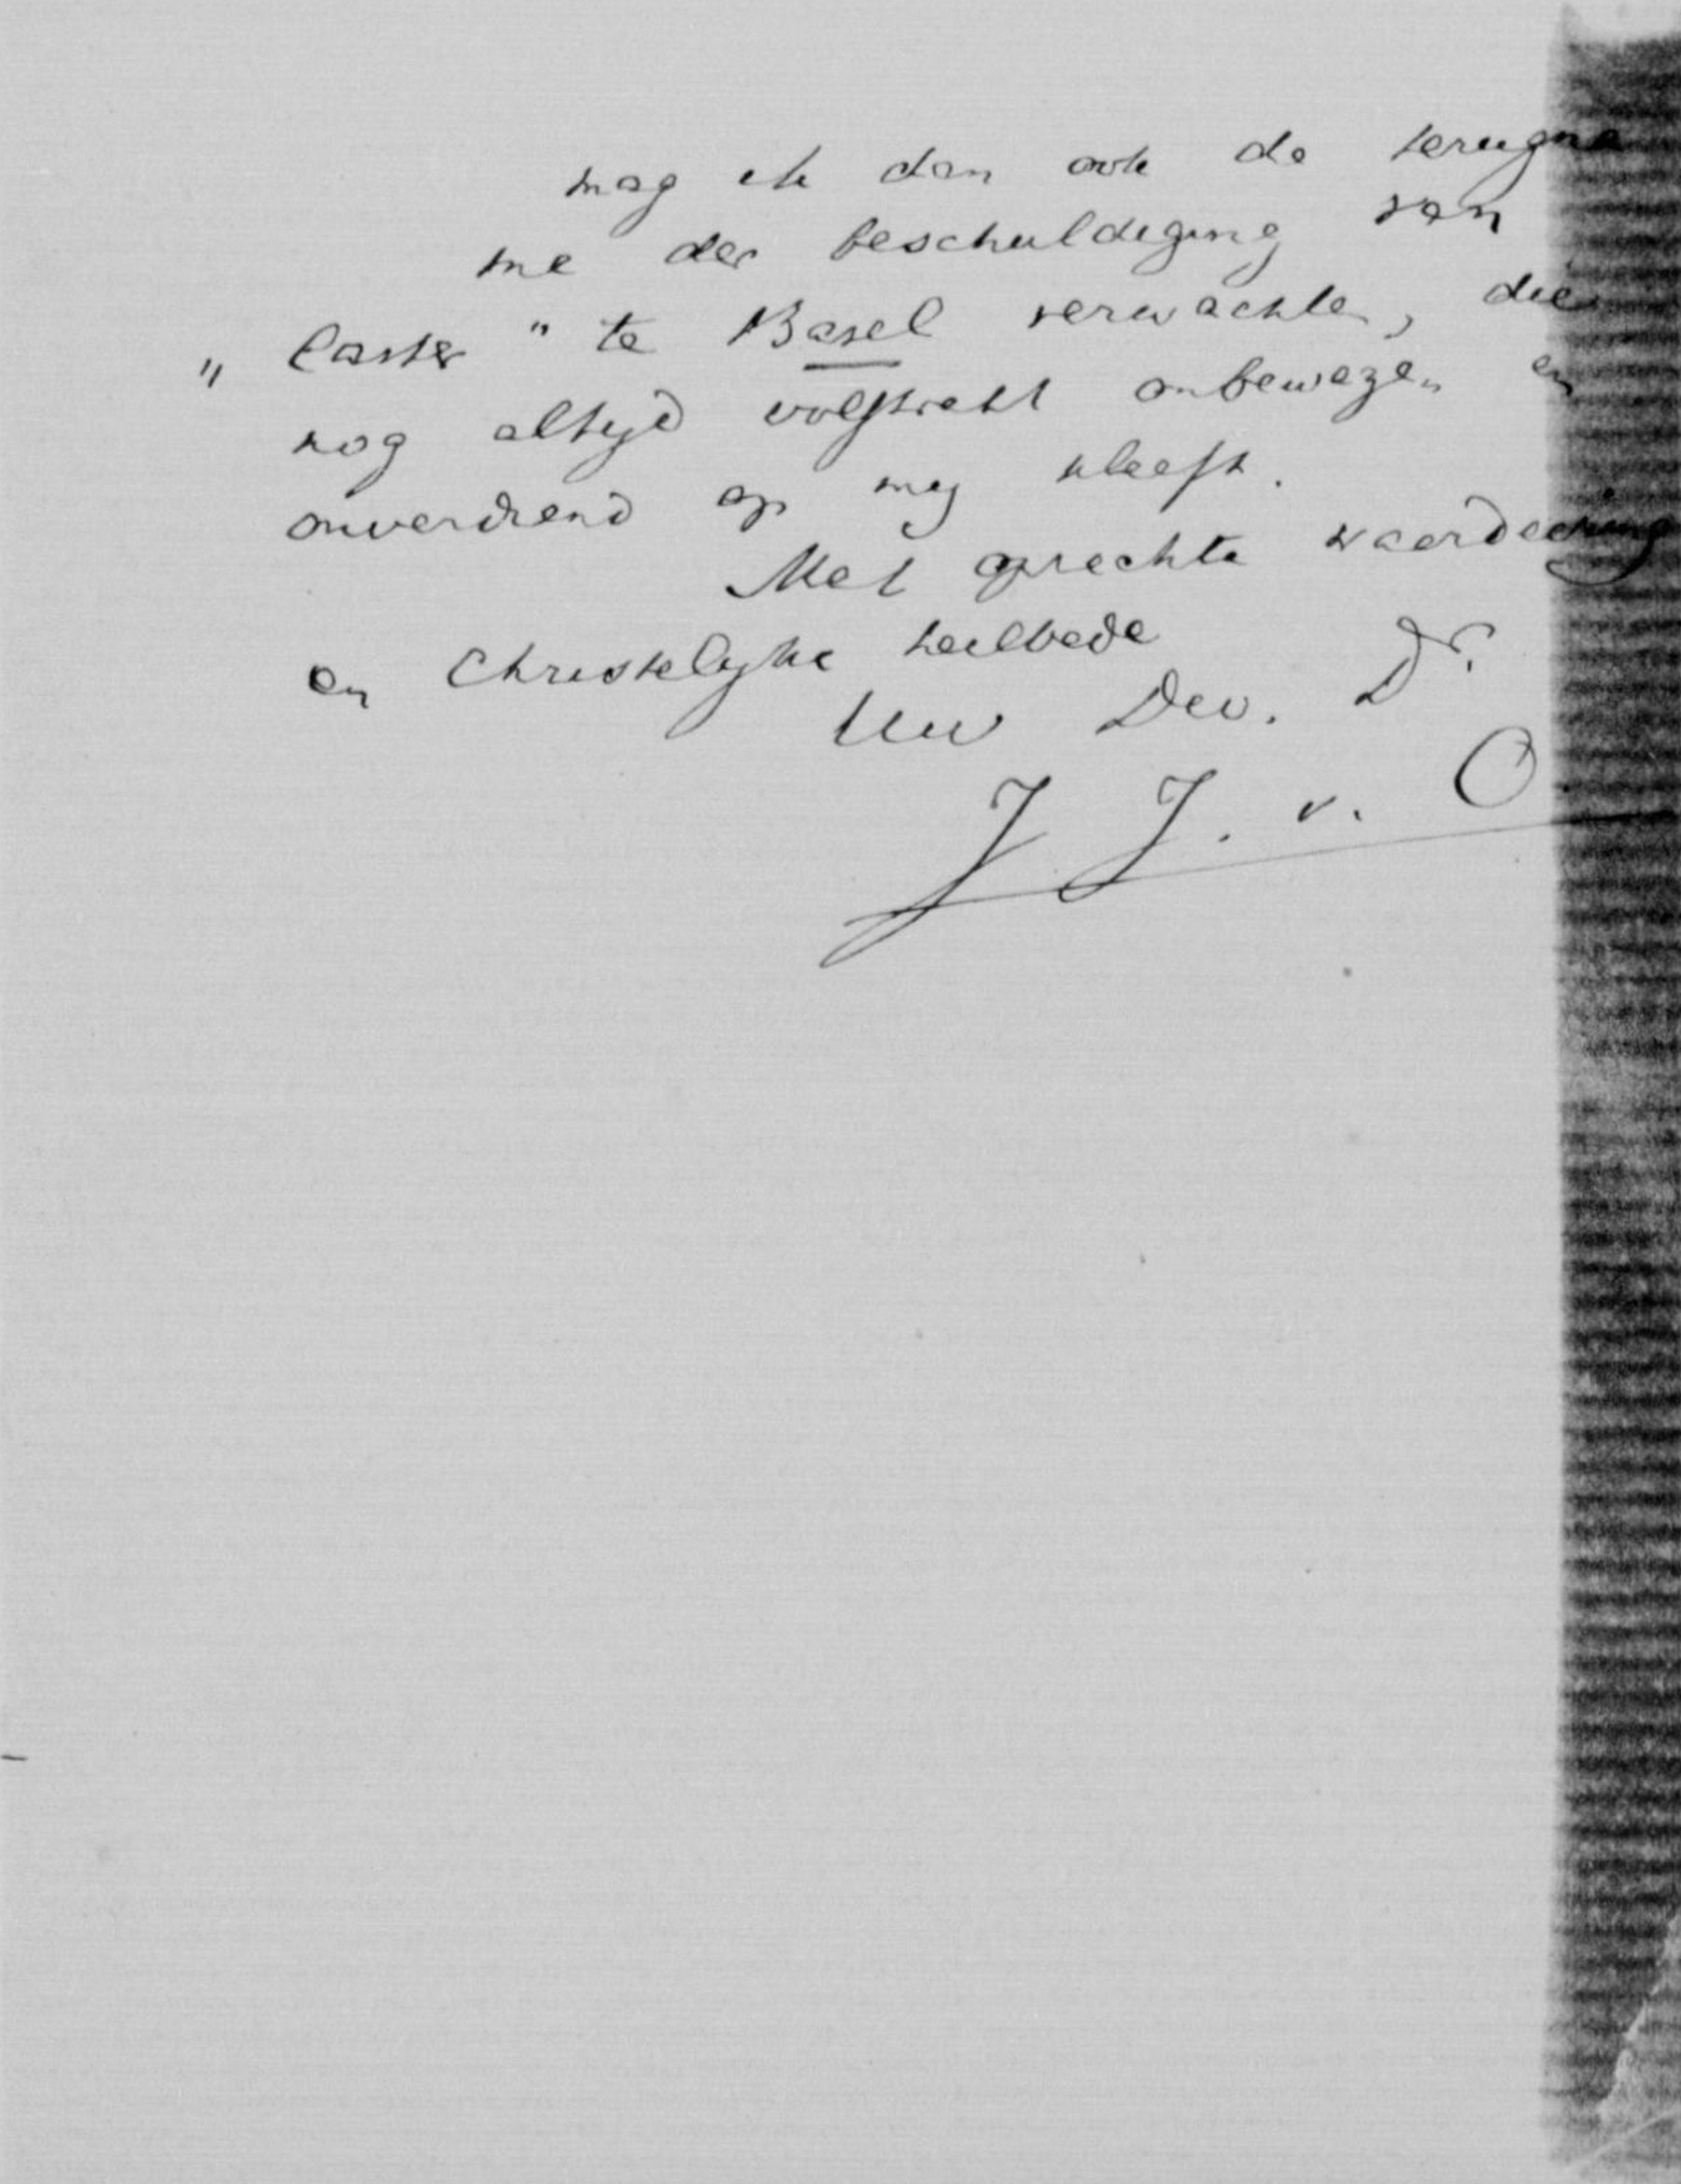 mag ik dan ook de terugna
me der beschuldiging van
„ laster " te Basel verwachten, die
nog altijd volstrekt onbewezen en
onverdiend op mij kleeft.
Met oprechte waardeering
en Christelijke heilbede
Uw Dev. Dr.
J J. v. O